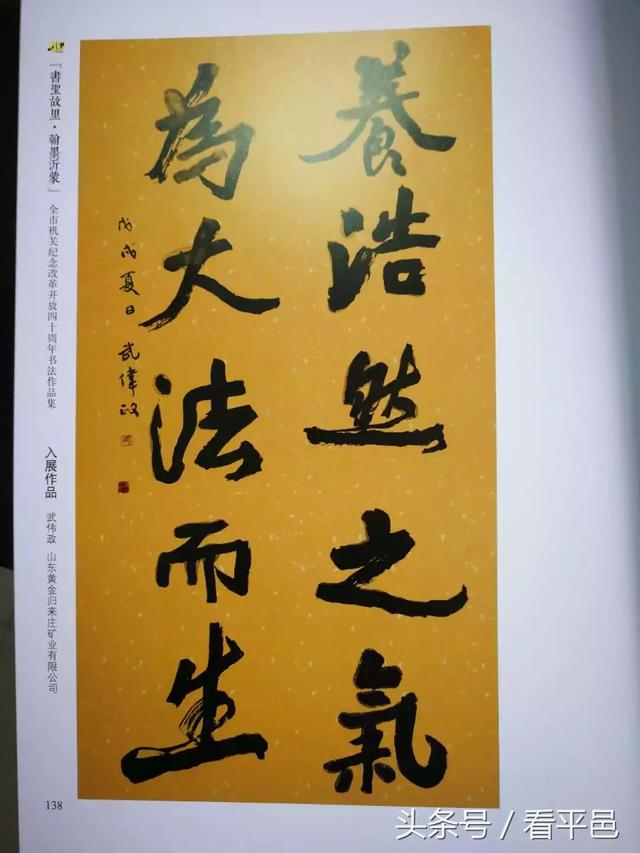 養浩然之氣
為大法而生
戊戌夏日武偉政
『書聖故里·翰墨沂蒙』
全市机关纪念改革开放四十周年书法作品集
入展作品
武伟政 山东黄金归来庄矿业有限公司
138
头条号/看平邑